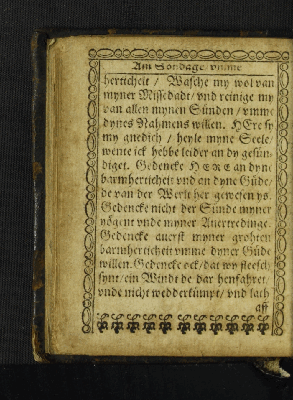 Am Sondage vmme
herticheit / Wasche my wol van
myner Missedadt / vnd reinige my
van allen mynen Sünden / vmme
dynes Nahmens willen. HEre sy
my gnedich / heyle myne Seele /
wente ick hebbe leider an dy gesün-
diget. Gedencke HERE an dyne
barmherticheit vnd an dyne Güde /
de van der Werlt her gewesen ys.
Gedencke nicht der Sünde myner
yöget vnde myner Auertredinge.
Gedencke auerst myner grohten
barmherticheit vmme dyner Güde
willen. Gedencke ock / dat wy fleesch
synt / ein Windt de dar henfahret,
vnde nicht wedderkümpt / vnd lath
aff